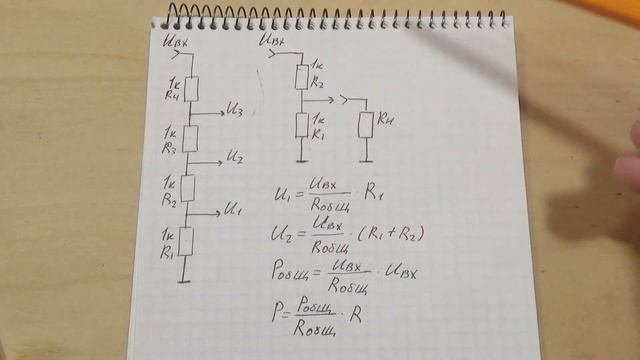 Uвх
1к
R4
U3
1к
R3
U2
1к
R2
U1
1к
R1
Uвх
1к
R2
1к
R1
Rн
U1 = Uвх / Rобщ · R1
U2 = Uвх / Rобщ · (R1 + R2)
Pобщ = Uвх / Rобщ · Uвх
P = Pобщ / Rобщ · R